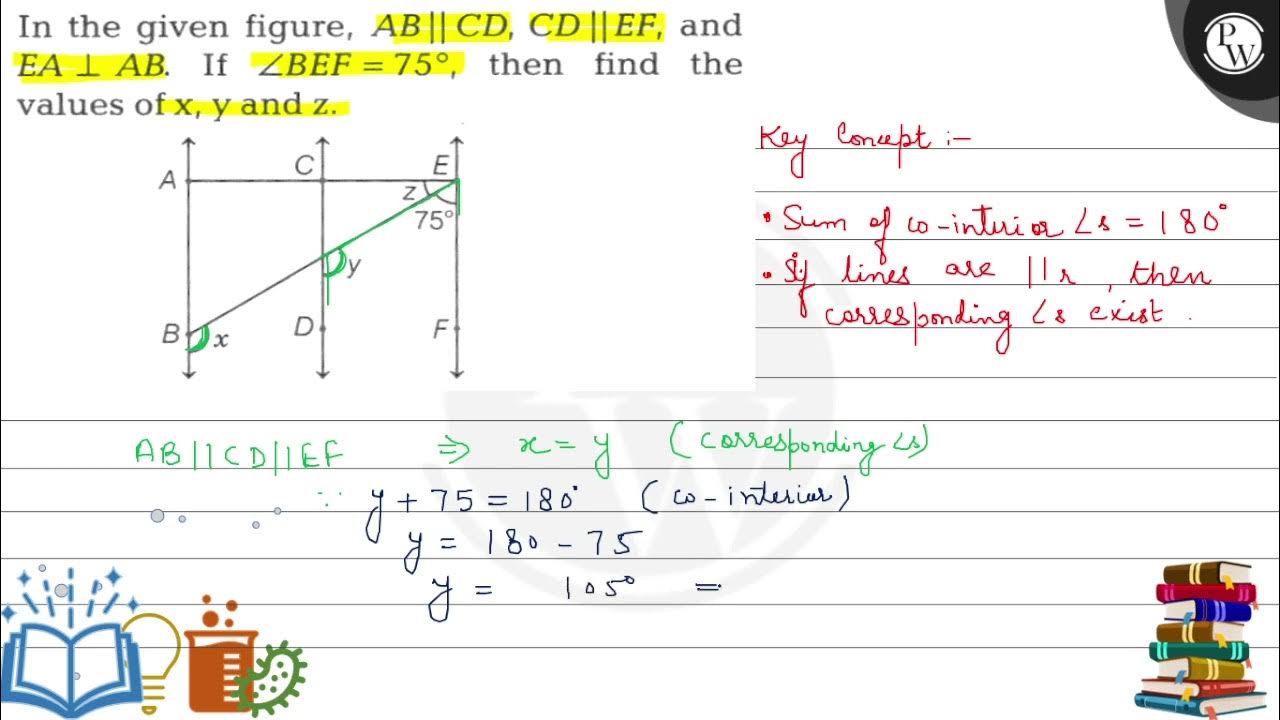 In the given figure, AB||CD, CD||EF, and
EA ⊥ AB. If ∠BEF = 75°, then find the
values of x, y and z.
PW
Key Concept :-
• Sum of co-interior ∠s = 180°
• If lines are ||r, then
corresponding ∠s exist.
A
C
E
z
75°
y
B
x
D
F
AB||CD||EF ⇒ x = y (corresponding ∠s)
∵ y + 75 = 180° (co-interior)
y = 180 - 75
y = 105° =